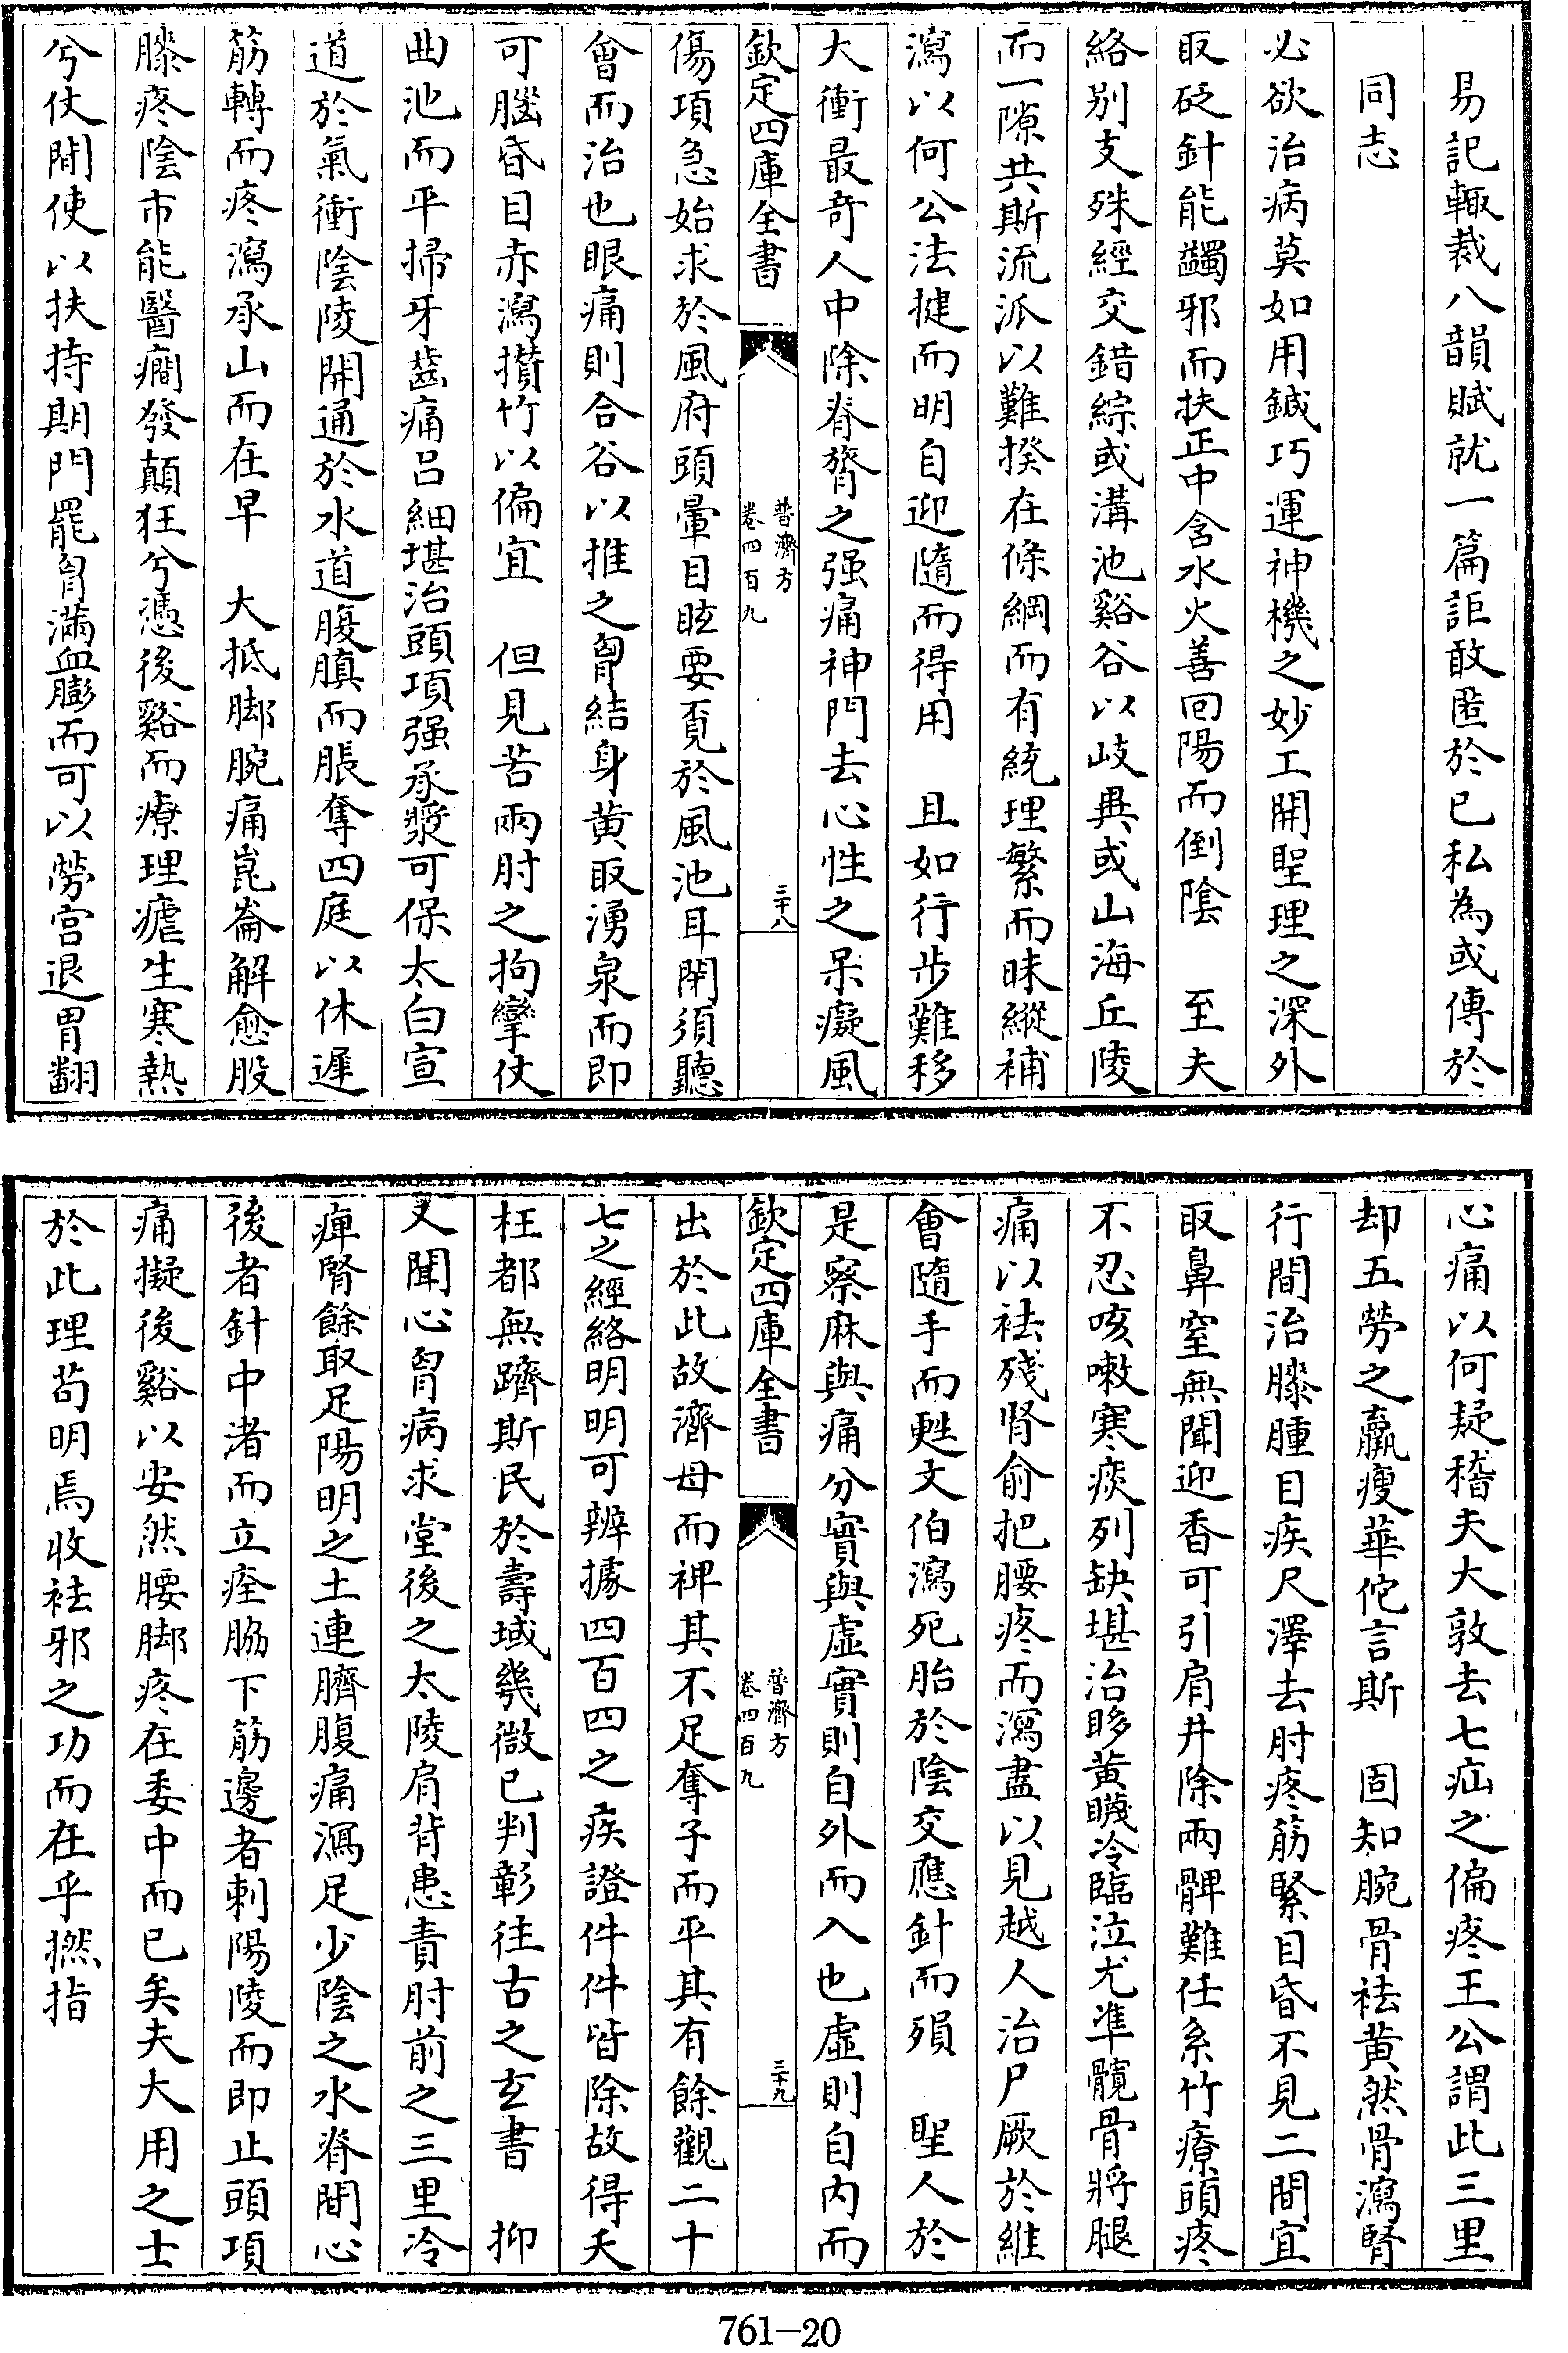 易記輙裁八韻賦就一篇詎敢匿於已私為或傳於
同志
必欲治病莫如用鍼巧運神機之妙工開聖理之深外
取砭針能蠲邪而扶正中含水火善回陽而倒陰　至夫
絡别支殊經交錯綜或溝池谿谷以岐異或山海丘陵
而一隙共斯流派以難揆在條綱而有統理繁而昧縱補
瀉以何公法揵而明自迎隨而得用　且如行步難移
大衝最奇人中除脊膂之强痛神門去心性之呆癡風
欽定四庫全書
普濟方
卷四百九
三十八
傷項急始求於風府頭暈目眩要覓於風池耳閉須聽
會而治也眼痛則合谷以推之胷結身黄取湧泉而即
可腦昏目赤瀉攅竹以偏宜　但見苦兩肘之拘攣仗
曲池而平掃牙齒痛吕細堪治頭項强承漿可保太白宣
道於氣衝陰陵開通於水道腹䐜而脹奪四庭以休遲
筋轉而疼瀉承山而在早　大抵脚腕痛崑崙解愈股
膝疼陰市能醫癎發顛狂兮憑後谿而療理瘧生寒熱
兮仗間使以扶持期門罷胷滿血膨而可以勞宫退胃翻
心痛以何疑稽夫大敦去七疝之偏疼王公謂此三里
却五勞之羸瘦華佗言斯　固知腕骨祛黄然骨瀉腎
行間治膝腫目疾尺澤去肘疼筋緊目昏不見二間宜
取鼻窒無聞迎香可引肩井除兩髀難任系竹療頭疼
不忍咳嗽寒痰列缺堪治眵黄䁾冷臨泣尤準髖骨將腿
痛以祛殘肾俞把腰疼而瀉盡以見越人治尸厥於維
會隨手而甦文伯瀉死胎於陰交應針而殞　聖人於
是察麻與痛分實與虚實則自外而入也虚則自内而
欽定四庫全書
普濟方
卷四百九
三十九
出於此故濟母而裨其不足奪子而平其有餘觀二十
七之經絡明明可辨據四百四之疾證件件皆除故得夭
枉都無躋斯民於壽域幾微已判彰往古之玄書　抑
又聞心胷病求堂後之太陵肩背患責肘前之三里冷
痺腎餘取足陽明之土連臍腹痛瀉足少陰之水脊間心
後者針中渚而立痊脇下筋邊者刺陽陵而即止頭項
痛擬後谿以安然腰脚疼在委中而已矣夫大用之士
於此理苟明焉收祛邪之功而在乎撚指
761-20